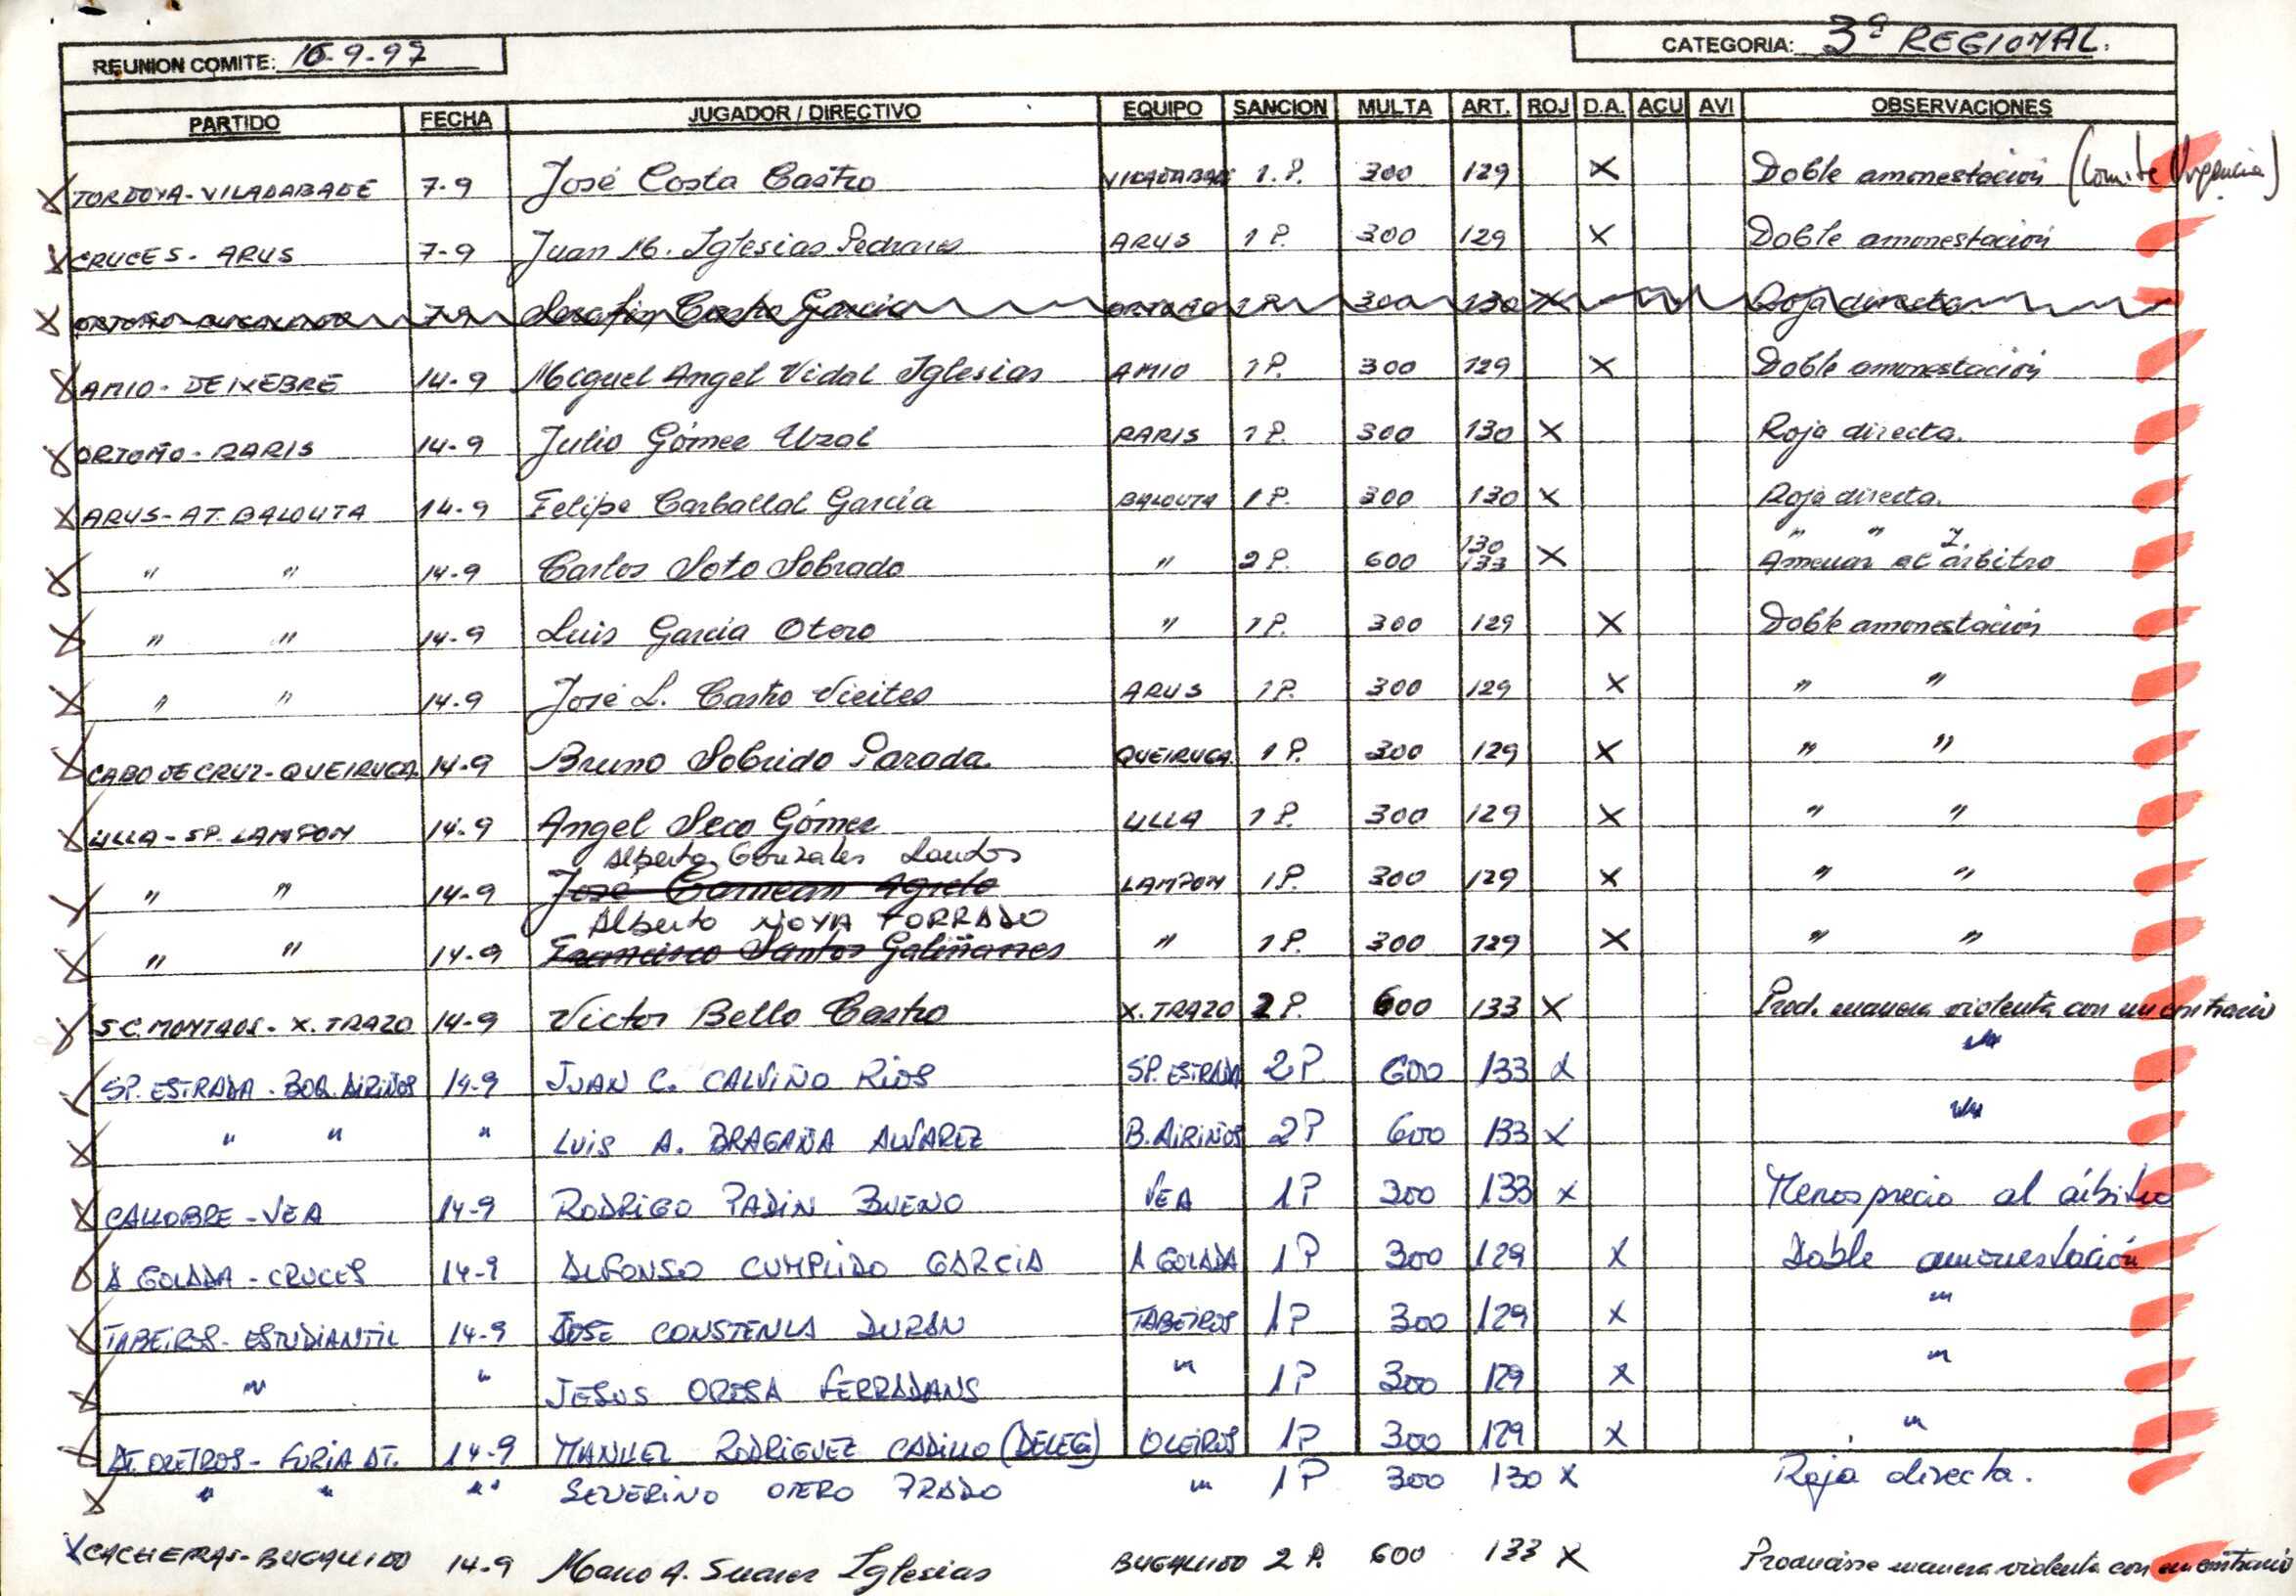 REUNION COMITE: 16-9-97
CATEGORIA: 3ª REGIONAL.
PARTIDO FECHA JUGADOR / DIRECTIVO EQUIPO SANCION MULTA ART. ROJ D.A. ACU AVI OBSERVACIONES
X TORDOYA - VILADABADE 7-9 José Costa Castro VILADABADE 1 P. 300 129 X Doble amonestación (Comité Urgencia)
X CRUCES - ARUS 7-9 Juan M. Iglesias ARUS 1 P. 300 129 X Doble amonestación
X 7-9 Serafin Castro Garcia ORTOÑO 1 P. 300 130 X Roja directa
X AMIO - DEIXEBRE 14-9 Miguel Angel Vidal Iglesias AMIO 1 P. 300 129 X Doble amonestación
X ORTOÑO - RARIS 14-9 Julio Gómez Uzal RARIS 1 P. 300 130 X Roja directa.
X ARUS - AT. BALOUTA 14-9 Felipe Carballal García BALOUTA 1 P. 300 130 X Roja directa.
X " " 14-9 Carlos Soto Sobrado " 2 P. 600 130 133 X " " y Amenazar al árbitro
X " " 14-9 Luis García Otero " 1 P. 300 129 X Doble amonestación
X " " 14-9 José L. Castro Vieites ARUS 1 P. 300 129 X " "
X CABO DE CRUZ - QUEIRUGA 14-9 Bruno Sobrido Parada QUEIRUGA. 1 P. 300 129 X " "
X ULLA - SP. LAMPON 14-9 Angel Seco Gómez ULLA 1 P. 300 129 X " "
Alberto Gonzales
X " " 14-9 José Camean Agrelo LAMPON 1 P. 300 129 X " "
Alberto NOYA TORRADO
X " " 14-9 Francisco Santos Galiñanes " 1 P. 300 129 X " "
X S.C. MONTAOS - X. TRAZO 14-9 Victor Bello Castro X. TRAZO 2 P. 600 133 X Prod. manera violenta con un contrario
X SP. ESTRADA - BOQ. AIRIÑOS 14-9 JUAN C. CALVIÑO RIOS SP. ESTRADA 2 P 600 133 X "
X " " " LUIS A. BRAGAÑA ALVAREZ B. AIRIÑOS 2 P 600 133 X "
X CALLOBRE - VEA 14-9 RODRIGO PADIN BUENO VEA 1 P 300 133 X Menosprecio al árbitro
X A GOLADA - CRUCES 14-9 ALFONSO CUMPLIDO GARCIA A GOLADA 1 P 300 129 X Doble amonestación
X TABEIROS - ESTUDIANTIL 14-9 JOSE CONSTENLA DURAN TABEIROS 1 P 300 129 X "
X " " JESUS OROSA FERRADANS " 1 P 300 129 X "
X AT. OLEIROS - FURIA AT. 14-9 MANUEL RODRIGUEZ CADILLO (DELEG) OLEIROS 1 P 300 129 X "
X " " " SEVERINO OTERO PRADO " 1 P 300 130 X Roja directa.
X CACHEIRAS - BUGALLIDO 14-9 Suarez Iglesias BUGALLIDO 2 P. 600 133 X Producirse manera violenta con un contrario